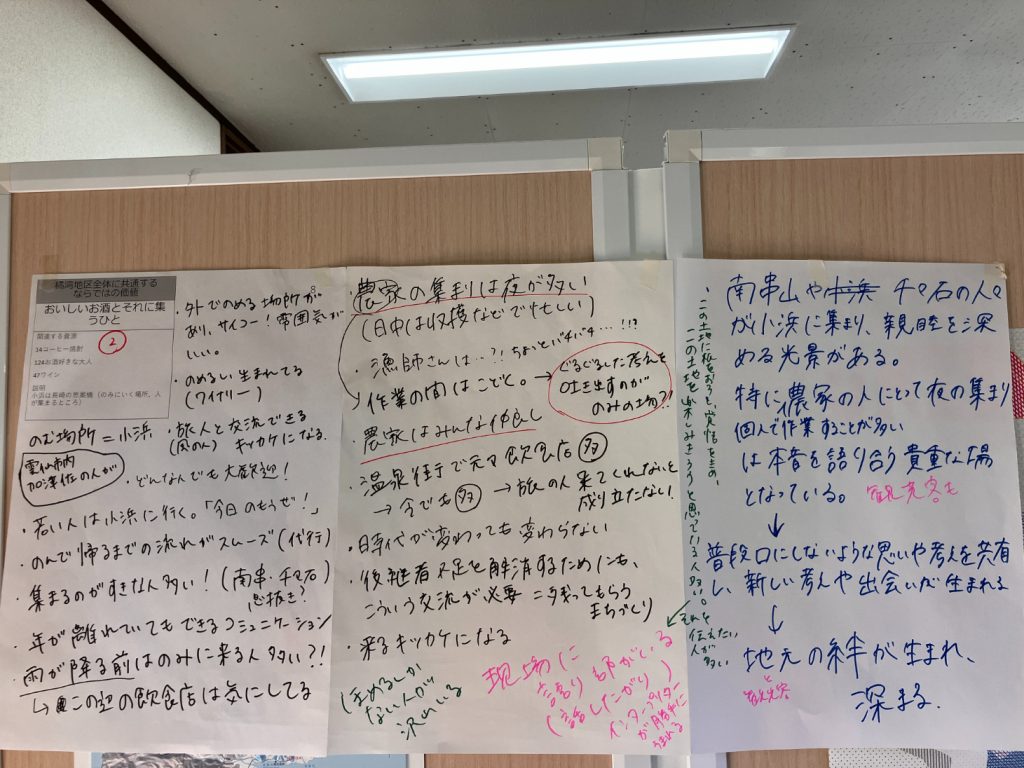 橘湾地区全体に共通する
ならではの価値
おいしいお酒とそれに集
うひと
関連する資源
2
14コーヒー焙煎
124お酒好きな大人
47ワイン
説明
小浜は長崎の思案橋（のみにいく場所、人
が集まるところ）
・外でのめる場所が
あり、サイコー！雰囲気が
いい。
・のめるい生まれてる
（ワイナリー）
のむ場所＝小浜
雲仙市内
加津佐のんが
・旅人と交流できる
キッカケになる
・どんなんでも大歓迎！
・若い人は小浜に行く。「今日のもうぜ！」
・のんで帰るまでの流れがスムーズ（代行）
・集まるのがすきな人多い！（南串・千々石）
息抜き？
・年が離れていてもできるコミュニケーション
・雨が降る前はのみに来る人多い？！
↳この辺の飲食店は気にしてる
・農家の集まりは夜が多い
（日中は収穫などで忙しい）
・漁師さんは…？！ちょっとバチバチ…!!?
作業の間はこどく。→
ぐるぐるした考えを
吐き出すのが
のみの場？！
・農家はみんな仲良し
・温泉街で元々飲食店多
→今でも多 →旅の人来てくれないと
成り立たない！
・時代が変わっても変わらない
・後継者不足を解消するためにも、
こういう交流が必要 =残ってもらう
まちづくり
・来るキッカケになる
ほめるしか
ない人が
現場に
語り師がいる
（話したがり）
インタープリター
が勝手に
生まれる
・この土地に根をおろす覚悟をきめ、
この土地を楽しみきろうと思っている人多い。
それを
伝えたい
人が
多い
南串山や小浜 千々石の人々
が小浜に集まり、親睦を深
める光景がある。
特に農家の人にとって夜の集まり
個人で作業することが多い
は本音を語り合う貴重な場
となっている。 観光客も
↓
普段口にしないような思いや考えを共有
し、新しい考えや出会いが生まれる
↓
地元の絆が生まれ、
と
観光客
深まる.